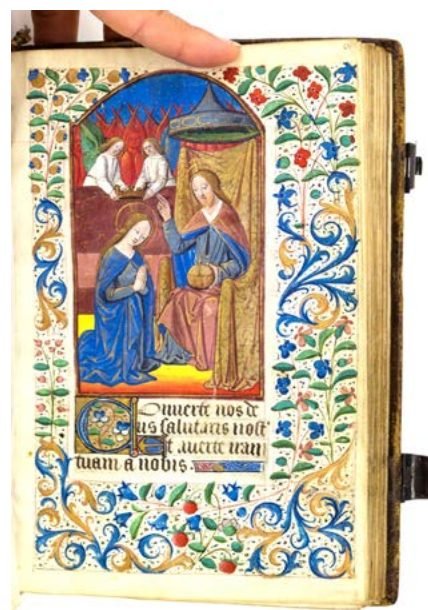 Conuerte nos de
us salutaris nost'
Et auerte iram
tuam a nobis.